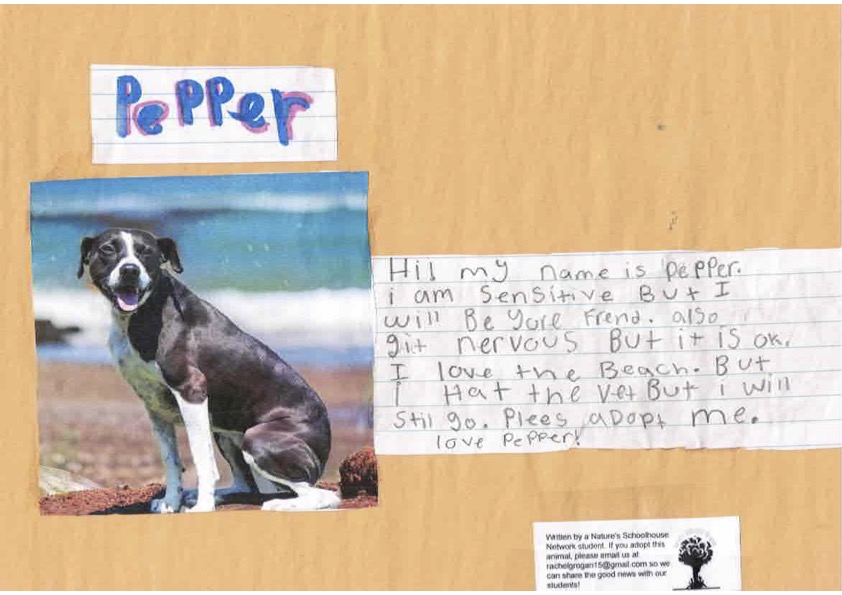 PePPer
Hi! my name is PePPer.
i am SenSitive But I
will Be yore Frend. also
git nervous But it is ok.
I love the Beach. But
I Hat the Vet But i will
Stil go. Plees aDopt me.
love PePPer!
Written by a Nature's Schoolhouse
Network student. If you adopt this
animal, please email us at
rachelgrogan15@gmail.com so we
can share the good news with our
students!